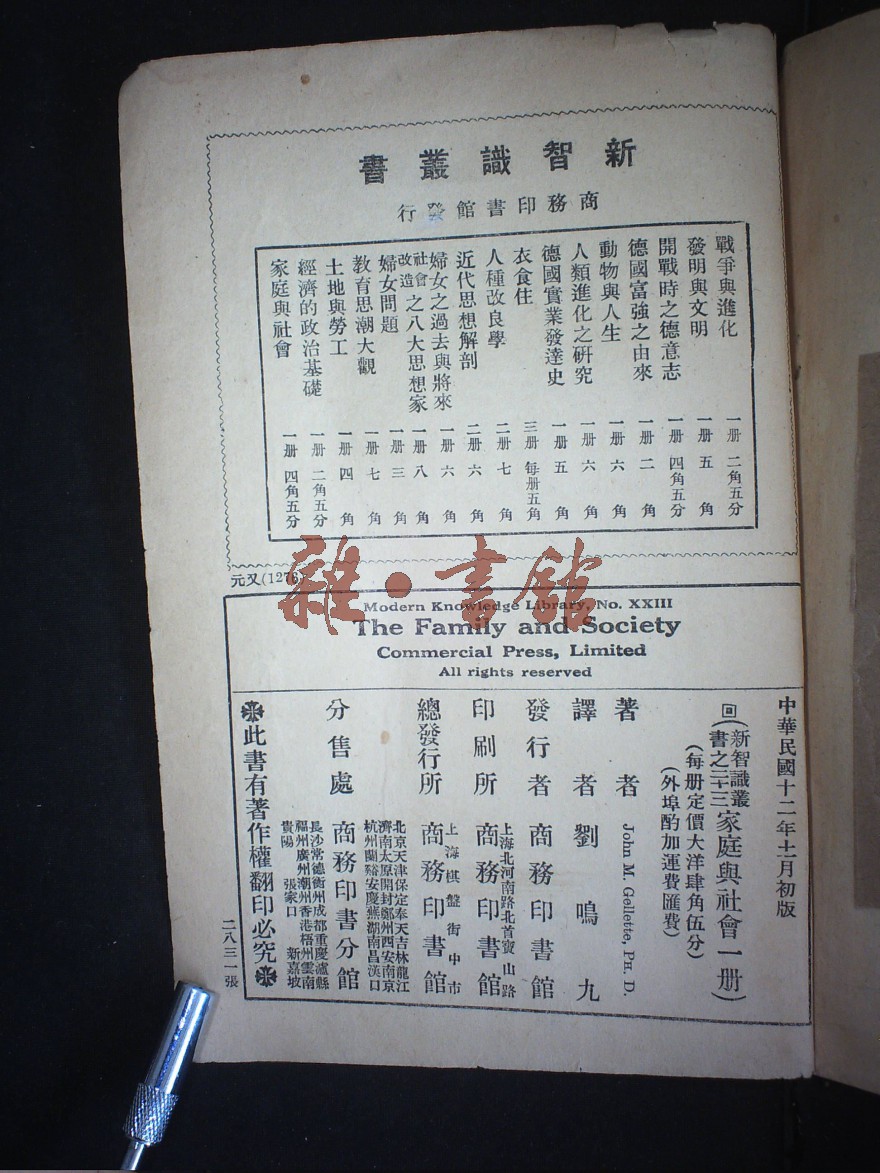 新智識叢書
商務印書館發行
戰爭與進化 一册 二角五分
發明與文明 一册 五角
開戰時之德意志 一册 四角五分
德國富強之由來 一册 二角
動物與人生 一册 六角
人類進化之研究 一册 六角
德國實業發達史 一册 五角
衣食住 三册 每册五角
人種改良學 二册 七角
近代思想解剖 二册 六角
婦女之過去與將來 一册 六角
社會改造之八大思想家 一册 八角
婦女問題 一册 三角
教育思潮大觀 一册 七角
土地與勞工 一册 四角
經濟的政治基礎 一册 二角五分
家庭與社會 一册 四角五分
元又(1276)
雜·書館
Modern Knowledge Library, No. XXIII
The Family and Society
Commercial Press, Limited
All rights reserved
中華民國十二年十一月初版
回(新智識叢書之二十三家庭與社會一册)
(每册定價大洋肆角伍分)
(外埠酌加運費匯費)
著者 John M. Gellette, PH. D.
譯者 劉鳴九
發行者 商務印書館
印刷所 上海北河南路北首寶山路 商務印書館
總發行所 上海棋盤街中市 商務印書館
分售處 商務印書分館
北京天津保定奉天吉林龍江
濟南太原開封鄭州西安南京
杭州蘭谿安慶蕪湖南昌漢口
長沙常德衡州成都重慶瀘縣
福州廣州潮州香港梧州雲南
貴陽 張家口 新嘉坡
此書有著作權翻印必究
二八三一張